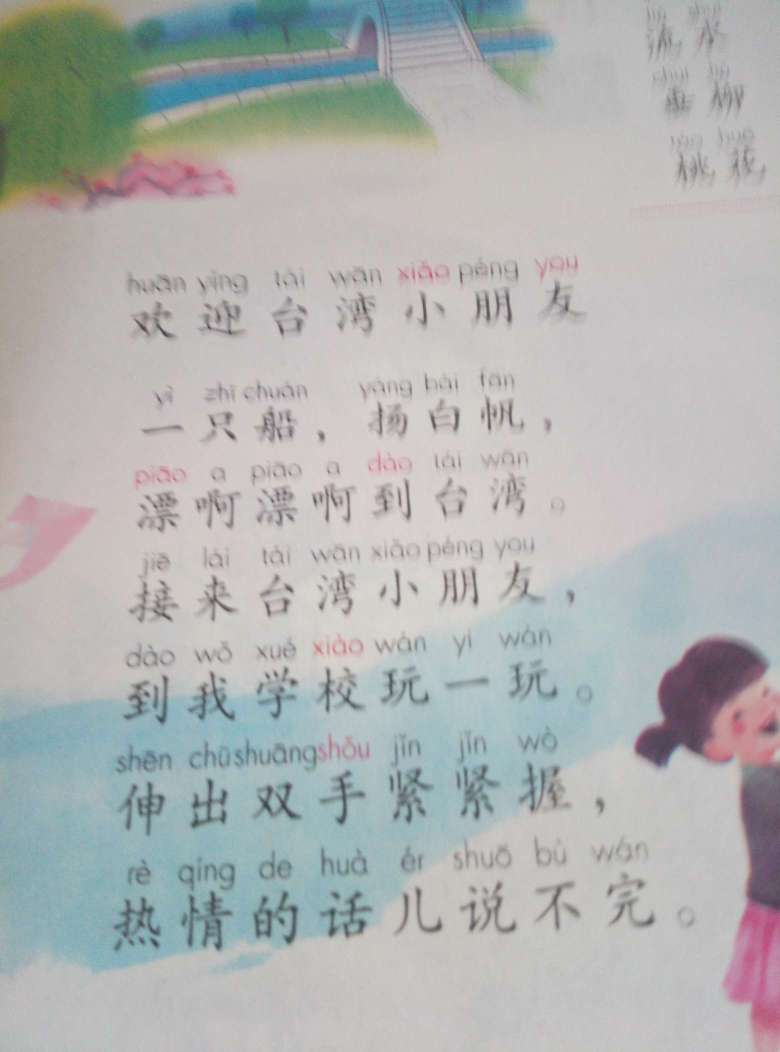 liú shuǐ
流水
chuí liǔ
垂柳
táo huā
桃花
huān yíng tái wān xiǎo péng you
欢迎台湾小朋友
yì zhī chuán yáng bái fān
一只船，扬白帆，
piāo a piāo a dào tái wān
漂啊漂啊到台湾。
jiē lái tái wān xiǎo péng you
接来台湾小朋友，
dào wǒ xué xiào wán yi wán
到我学校玩一玩。
shēn chū shuāng shǒu jǐn jǐn wò
伸出双手紧紧握，
rè qíng de huà ér shuō bù wán
热情的话儿说不完。